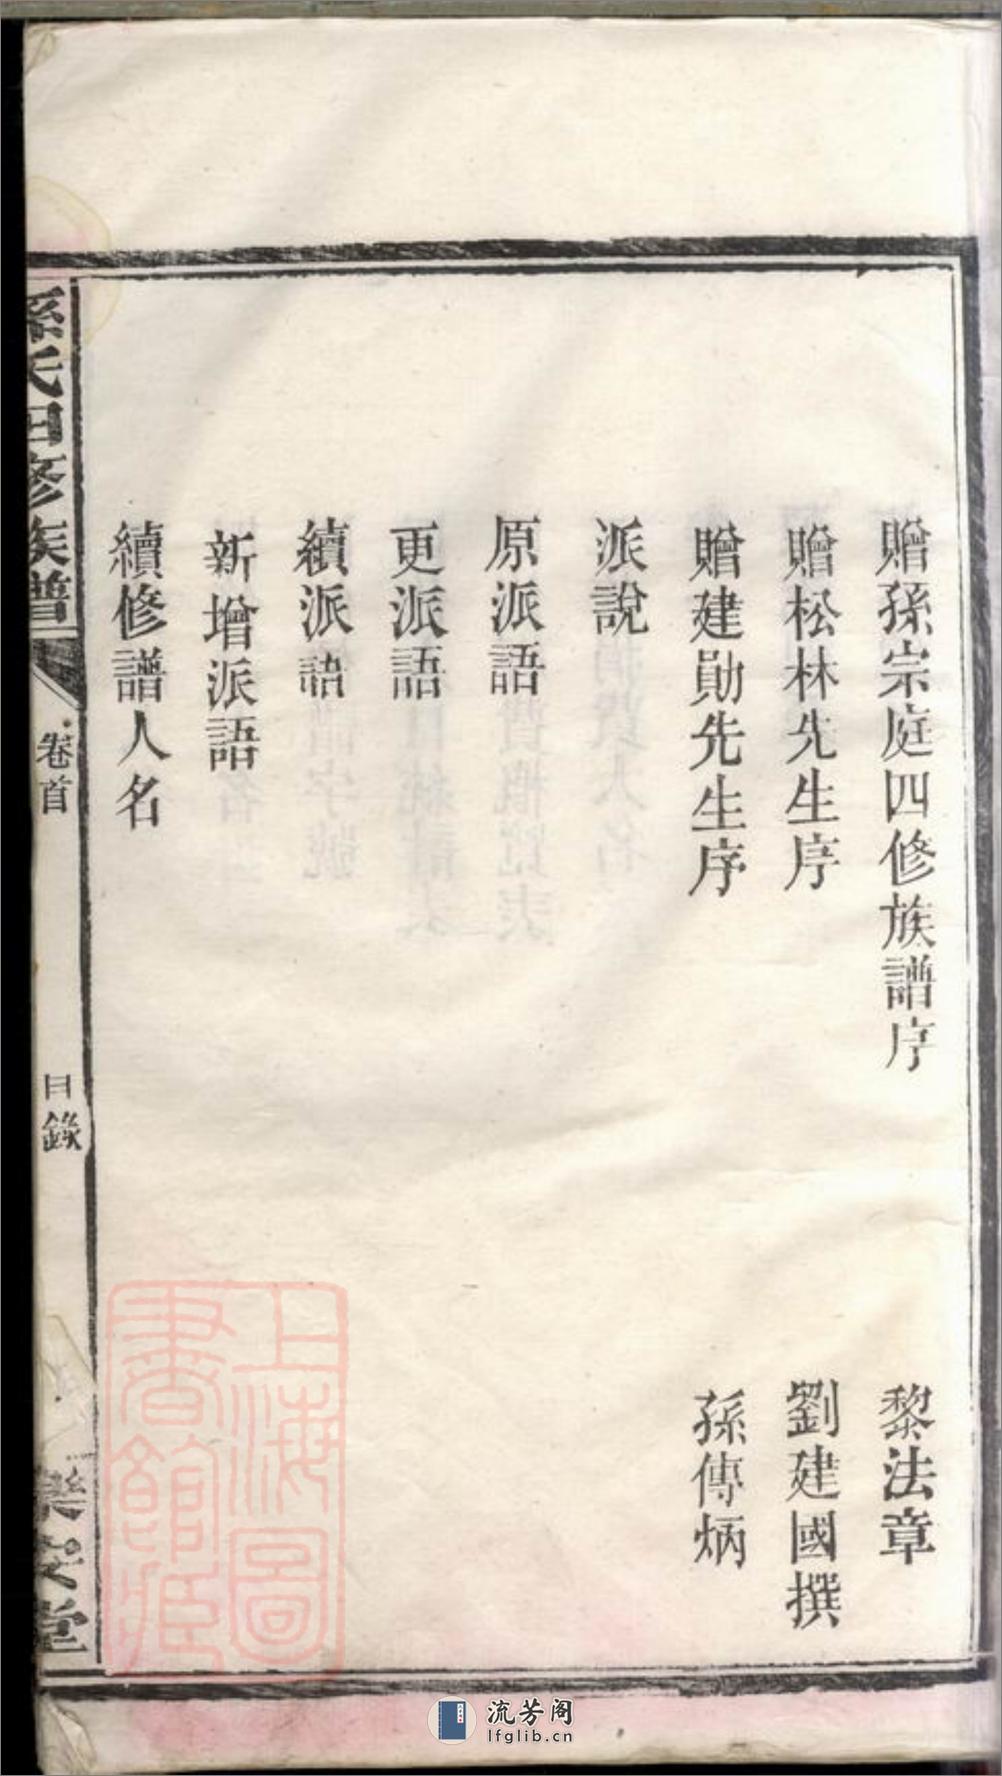 贈孫宗庭四修族譜序 黎法章
贈松林先生序 劉建國撰
贈建勛先生序 孫傳炳
派說
原派語
更派語
續派語
新增派語
續修譜人名
孫氏四修族譜 卷首 目錄 樂安堂
上海圖書館藏
流芳阁
lfglib.cn